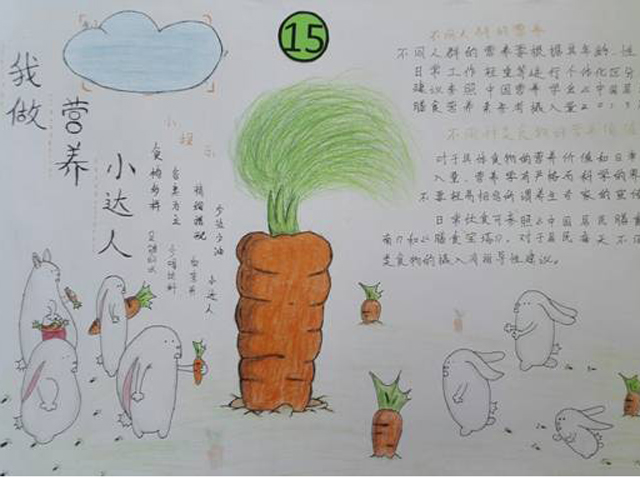 15
我做
营养
小达人
小提示
食物多样
谷类为主
粗细搭配
少盐少油
小达人
不同人群的营养
不同人群的营养要根据其年龄、性
日常工作 程度等进行个体化区分
建议参照 中国营养学会 中国居
膳食营养素参考摄入量 201
不同种类食物的营养价值
对于具体食物的营养价值如日常
入量、营养学有严格而科学的界
不要轻易相信所谓养生专家的宣
日常饮食可参照 中国居民膳食
南 膳食宝塔 、对于居民每天不
类食物的摄入有指导性建议。